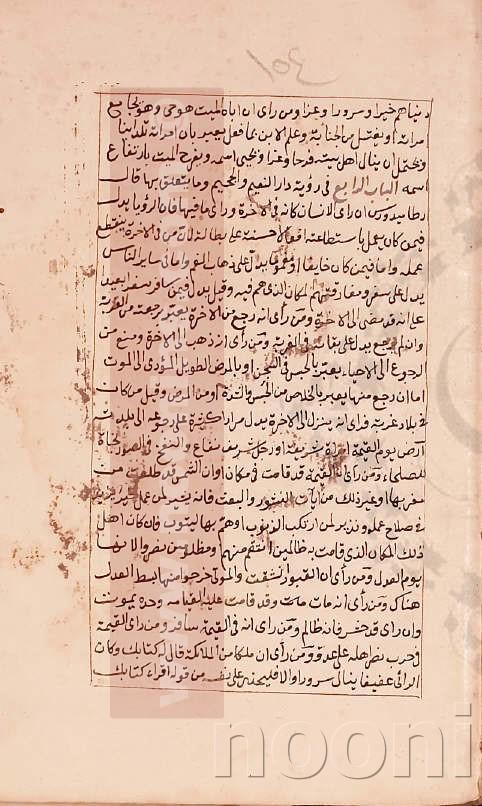 دنياهم خيرا وسرورا وعزا ومن راى ان اباه الميت هو حى وهو يجامع
مراته او يغتسل من الجنابة وعلم الابن بما فعل يعبر بان امراته تلد ابنا
ويحتمل ان ينال اهل بيته فرحا وعزا ويحيى اسمه ويفرح الميت بارتفاع
اسمه الباب الرابع فى رؤية دار النعيم والجحيم وما يتعلق بها قال
ارطاميدورس ان راى الانسان كانه فى الاخرة وراى ما فيها فان الرؤيا يدل
فيمن كان يعمل باستطاعته افعالا حسنة على بطالة لان من فى الاخرة ينقطع
عمله واما فيمن كان خايفا او مغموما يدل على ذهاب الغم واما فى ساير الناس
يدل على سفر ومفارقتهم المكان الذى هم فيه وقيل يدل فيمن سافر سفر بعيد
على انه قد مضى الى الاخرة ومن راى انه رجع من الاخرة يعتبر برجعته من الغربة
وان لم يرجع يدل على بقايه فى الغربة ومن راى انه ذهب الى الاخرة ومنع من
الرجوع الى الاحياء يعتبر بالحبس فى السجن او بالمرض الطويل المؤدى الى الموت
اما ان رجع منها يعبر بالخلاص من الحبس والشدة او من المرض وقيل من كان
فى بلاد غربة وراى انه ينزل الى الاخرة يدل مرارا كثيرة على رجوعه الى بلده
ارض يوم القيمة امراة شريفة او رجل شريف نفاع والنفخ فى الصور نجاة
للصلحاء ومن راى ان القيمة قد قامت فى مكان او ان الشمس قد طلعت من
مغربها او غير ذلك من ايات النشور والبعث فانه بشير لمن عمل خيرا
فى صلاح عمله ونذير لمن ارتكب الذنوب او هم بها ليتوب فان كان اهل
ذلك المكان الذى قامت به ظالمين انتقم منهم او مظلومين نصروا لانها
يوم العدل ومن راى ان القبور انشقت والموتى خرجوا منها بسط العدل
هناك ومن راى انه مات وقد قامت عليه القيامه وحده يموت
وان راى قد حشر فانه ظالم ومن راى انه فى القيمة سافر ومن راى القيمة
فى حرب نصر اهله على عدوه ومن راى ان ملكا من الملائكة قال له اقرا كتابك وكان
الرائى عفيفا ينال سرورا والا فليحذر على نفسه من قوله اقراء كتابك
nooni